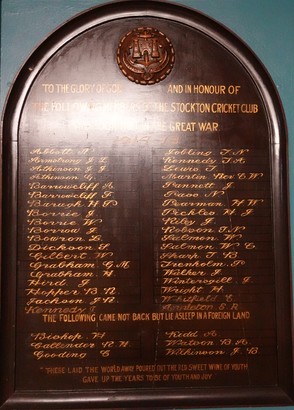 TO THE GLORY OF GOD AND IN HONOUR OF
THE FOLLOWING OF THE STOCKTON CRICKET CLUB
THE GREAT WAR
Abbott
Armstrong J. L.
Atkinson J. J.
Atkinson G.
Barrowcliff A.
Barrowcliff F.
Baragh H P
Borrie J.
Borrie W.
Borrow J.
Bowron L.
Dickson T.
Gilbert W.
Grabham G. M.
Grabham H.
Herd J.
Hopper B. N.
Jackson J. H.
Kennedy J.
Jobling T. N.
Kennedy T. A.
Lewis T.
Martin Rev E W
Pannett J.
Pearman H. W.
Peckles H. J.
Riley J.
Robson T. N.
Salmon W.
Salmon W. E.
Sharp T. B.
Trenholm P.
Walker J.
Wintersgill J.
Wright H.
Whitfield E.
THE FOLLOWING CAME NOT BACK BUT LIE ASLEEP IN A FOREIGN LAND
Bishop. H
Callender R. H
Gooding E
Kidd A.
Watson B. A.
Wilkinson J. B.
"THESE LAID THE WORLD AWAY POURED OUT THE RED SWEET WINE OF YOUTH
GAVE UP THE YEARS TO BE OF YOUTH AND JOY